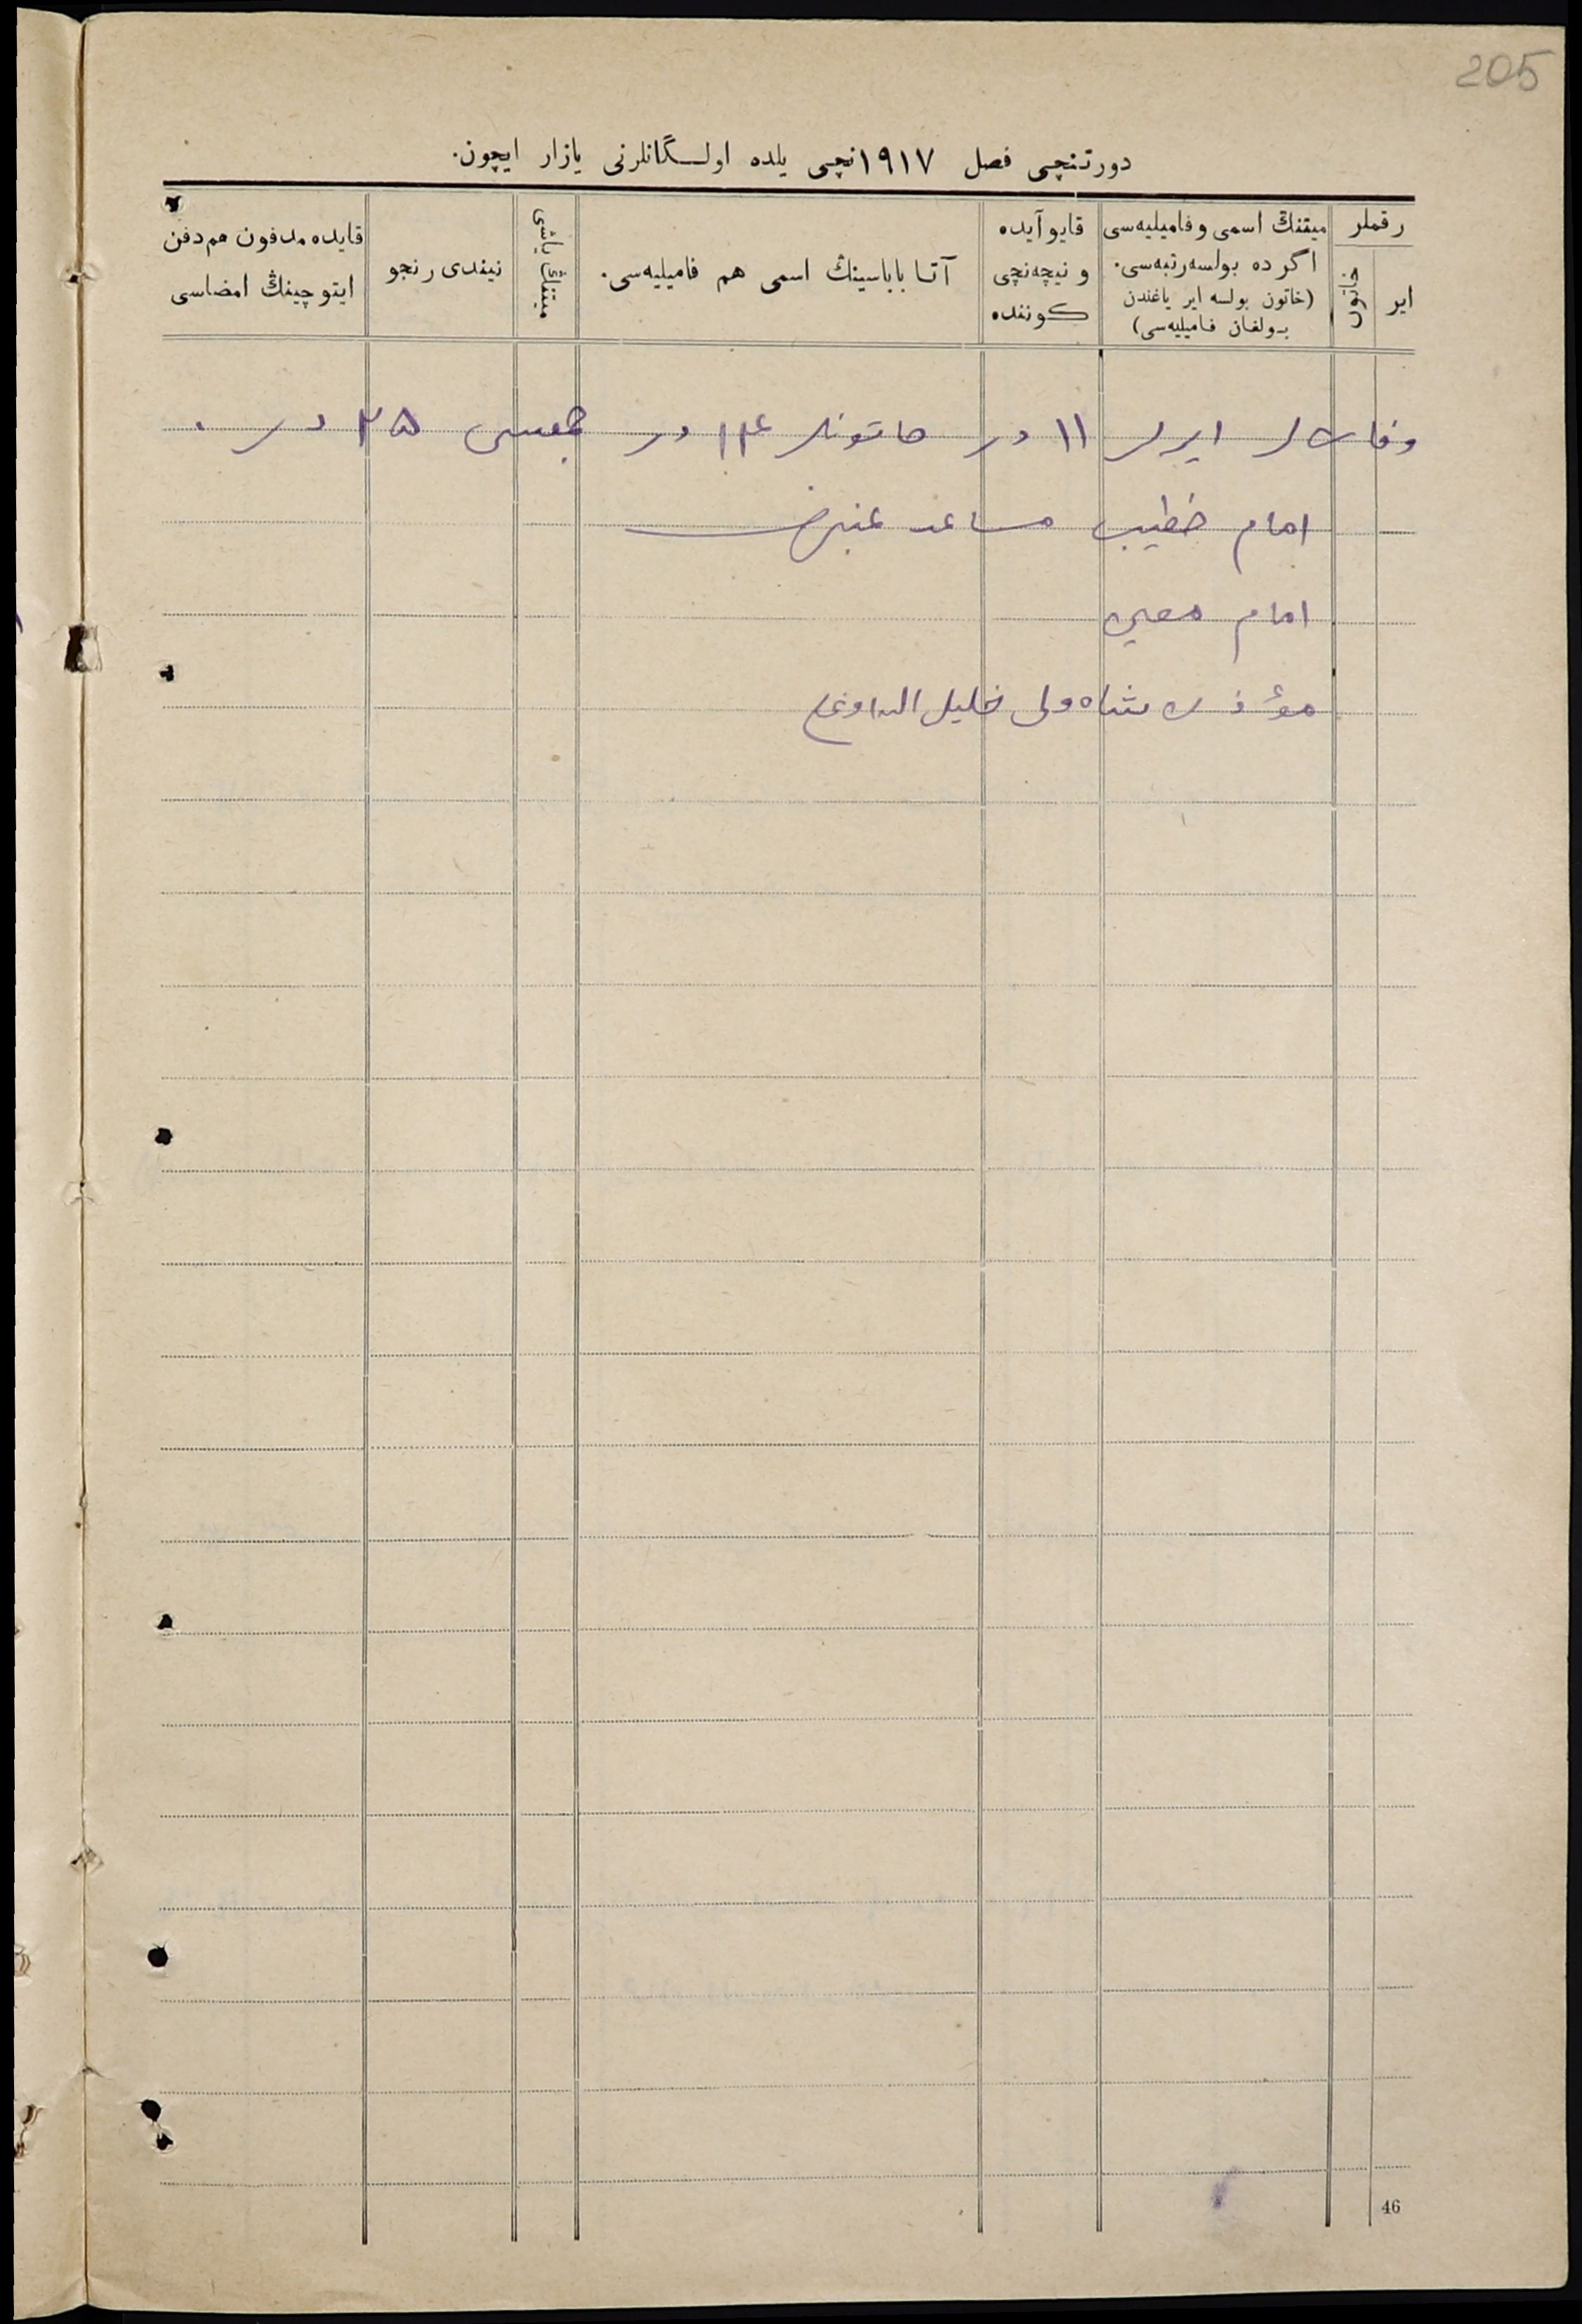 205
دورتنچی فصل ۱۹۱۷نچی یلده اولـگانلرنی یازار ایچون.
رقملر
ایر
خاتون
میتنڭ اسمی و فامیلیه‌سی
اگر ده بولسه رتبه‌سی.
(خاتون بولسه ایر یاغندن
بولغان فامیلیه‌سی)
قایو آیده
و نیچه‌نچی
کوننده
آتا باباسینڭ اسمی هم فامیلیه‌سی.
میتنڭ یاشی
نیندی رنجو
قایده مدفون هم دفن
ایتوچینڭ امضاسی
وفات لر ایرلر ۱۱ در خاتونلر ۱۴ در جمعسی ۲۵ در.
امام خطیب مساعد
امام معین
مؤذن شاه ولی خلیل
46